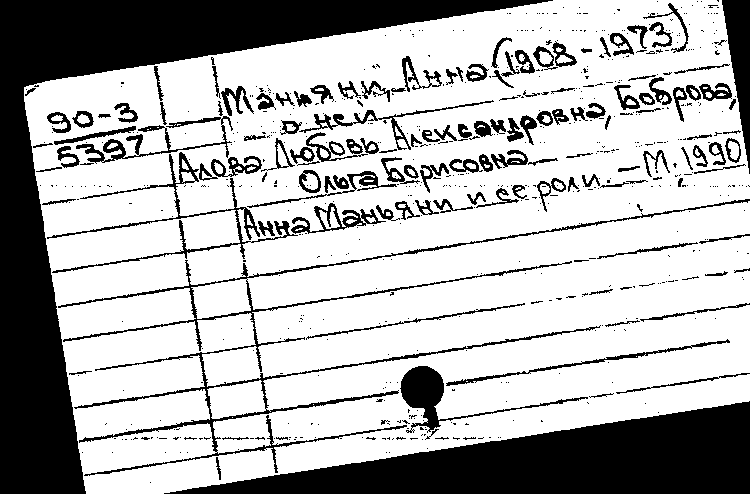 Маньяни, Анна (1908-1973)
90-3
5397
о ней
Алова, Любовь Александровна, Боброва,
Ольга Борисовна
Анна Маньяни и ее роли. - М. 1990